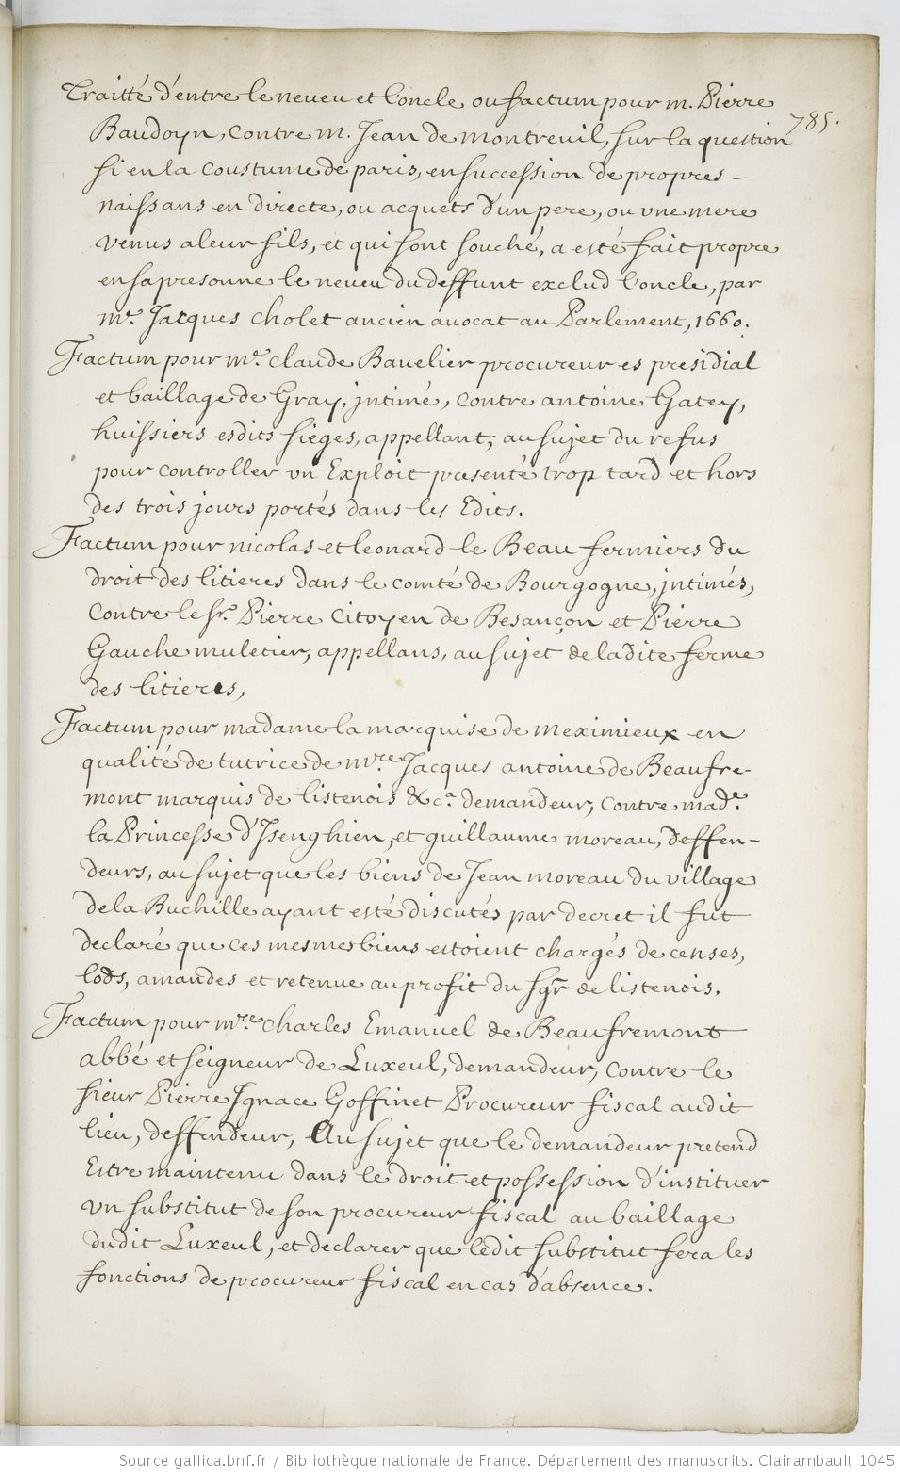 785.
Traitté d'entre le neveu et l'oncle ou factum pour m. Pierre
Baudoyn, contre m. Jean de montreuil, sur la question
si en la coustume de paris, en succession de propres
naissans en directe, ou acquets d'un pere, ou une mere
venus a leur fils, et qui sont souché, a esté fait propre
en sa presonne le neveu du deffunt exclud l'oncle, par
mr. Jacques cholet ancien avocat au Parlement, 1660.
Factum pour me. claude Bavelier procureur es presidial
et baillage de Gray, jntimé, contre antoine Gatey,
huissiers esdits sieges, appellant, au sujet du refus
pour controller un Exploit presenté trop tard et hors
des trois jours portés dans les Edits.
Factum pour nicolas et leonard le Beau fermiers du
droit des litieres dans le comté de Bourgogne, jntimés,
contre le sr. Pierre Citoyen de Besançon et Pierre
Gauche muletier, appellans, au sujet de ladite ferme
des litieres,
Factum pour madame la marquise de meximieux en
qualité de tutrice de mre. Jacques antoine de Beaufre-
mont marquis de listenois &ca. demandeur, contre made.
la Princesse d'Isenghien, et guillaume moreau, deffen-
deurs, au sujet que les biens de Jean moreau du village
de la Ruchille ayant esté discutés par decret il fut
declaré que ces mesmes biens estoient chargés de censes,
lods, amandes et retenue au profit du sgr. de listenois.
Factum pour mre. charles Emanuel de Beaufremont
abbé et seigneur de Luxeul, demandeur, contre le
sieur Pierre Ignace Goffinet Procureur fiscal audit
lieu, deffendeur, Au sujet que le demandeur pretend
Estre maintenu dans le droit et possession d'instituer
un substitut de son procureur fiscal au baillage
dudit Luxeul, et declarer que ledit substitut fera les
fonctions de procureur fiscal en cas d'absence.
Source gallica.bnf.fr / Bibliothèque nationale de France. Département des manuscrits. Clairambault 1045